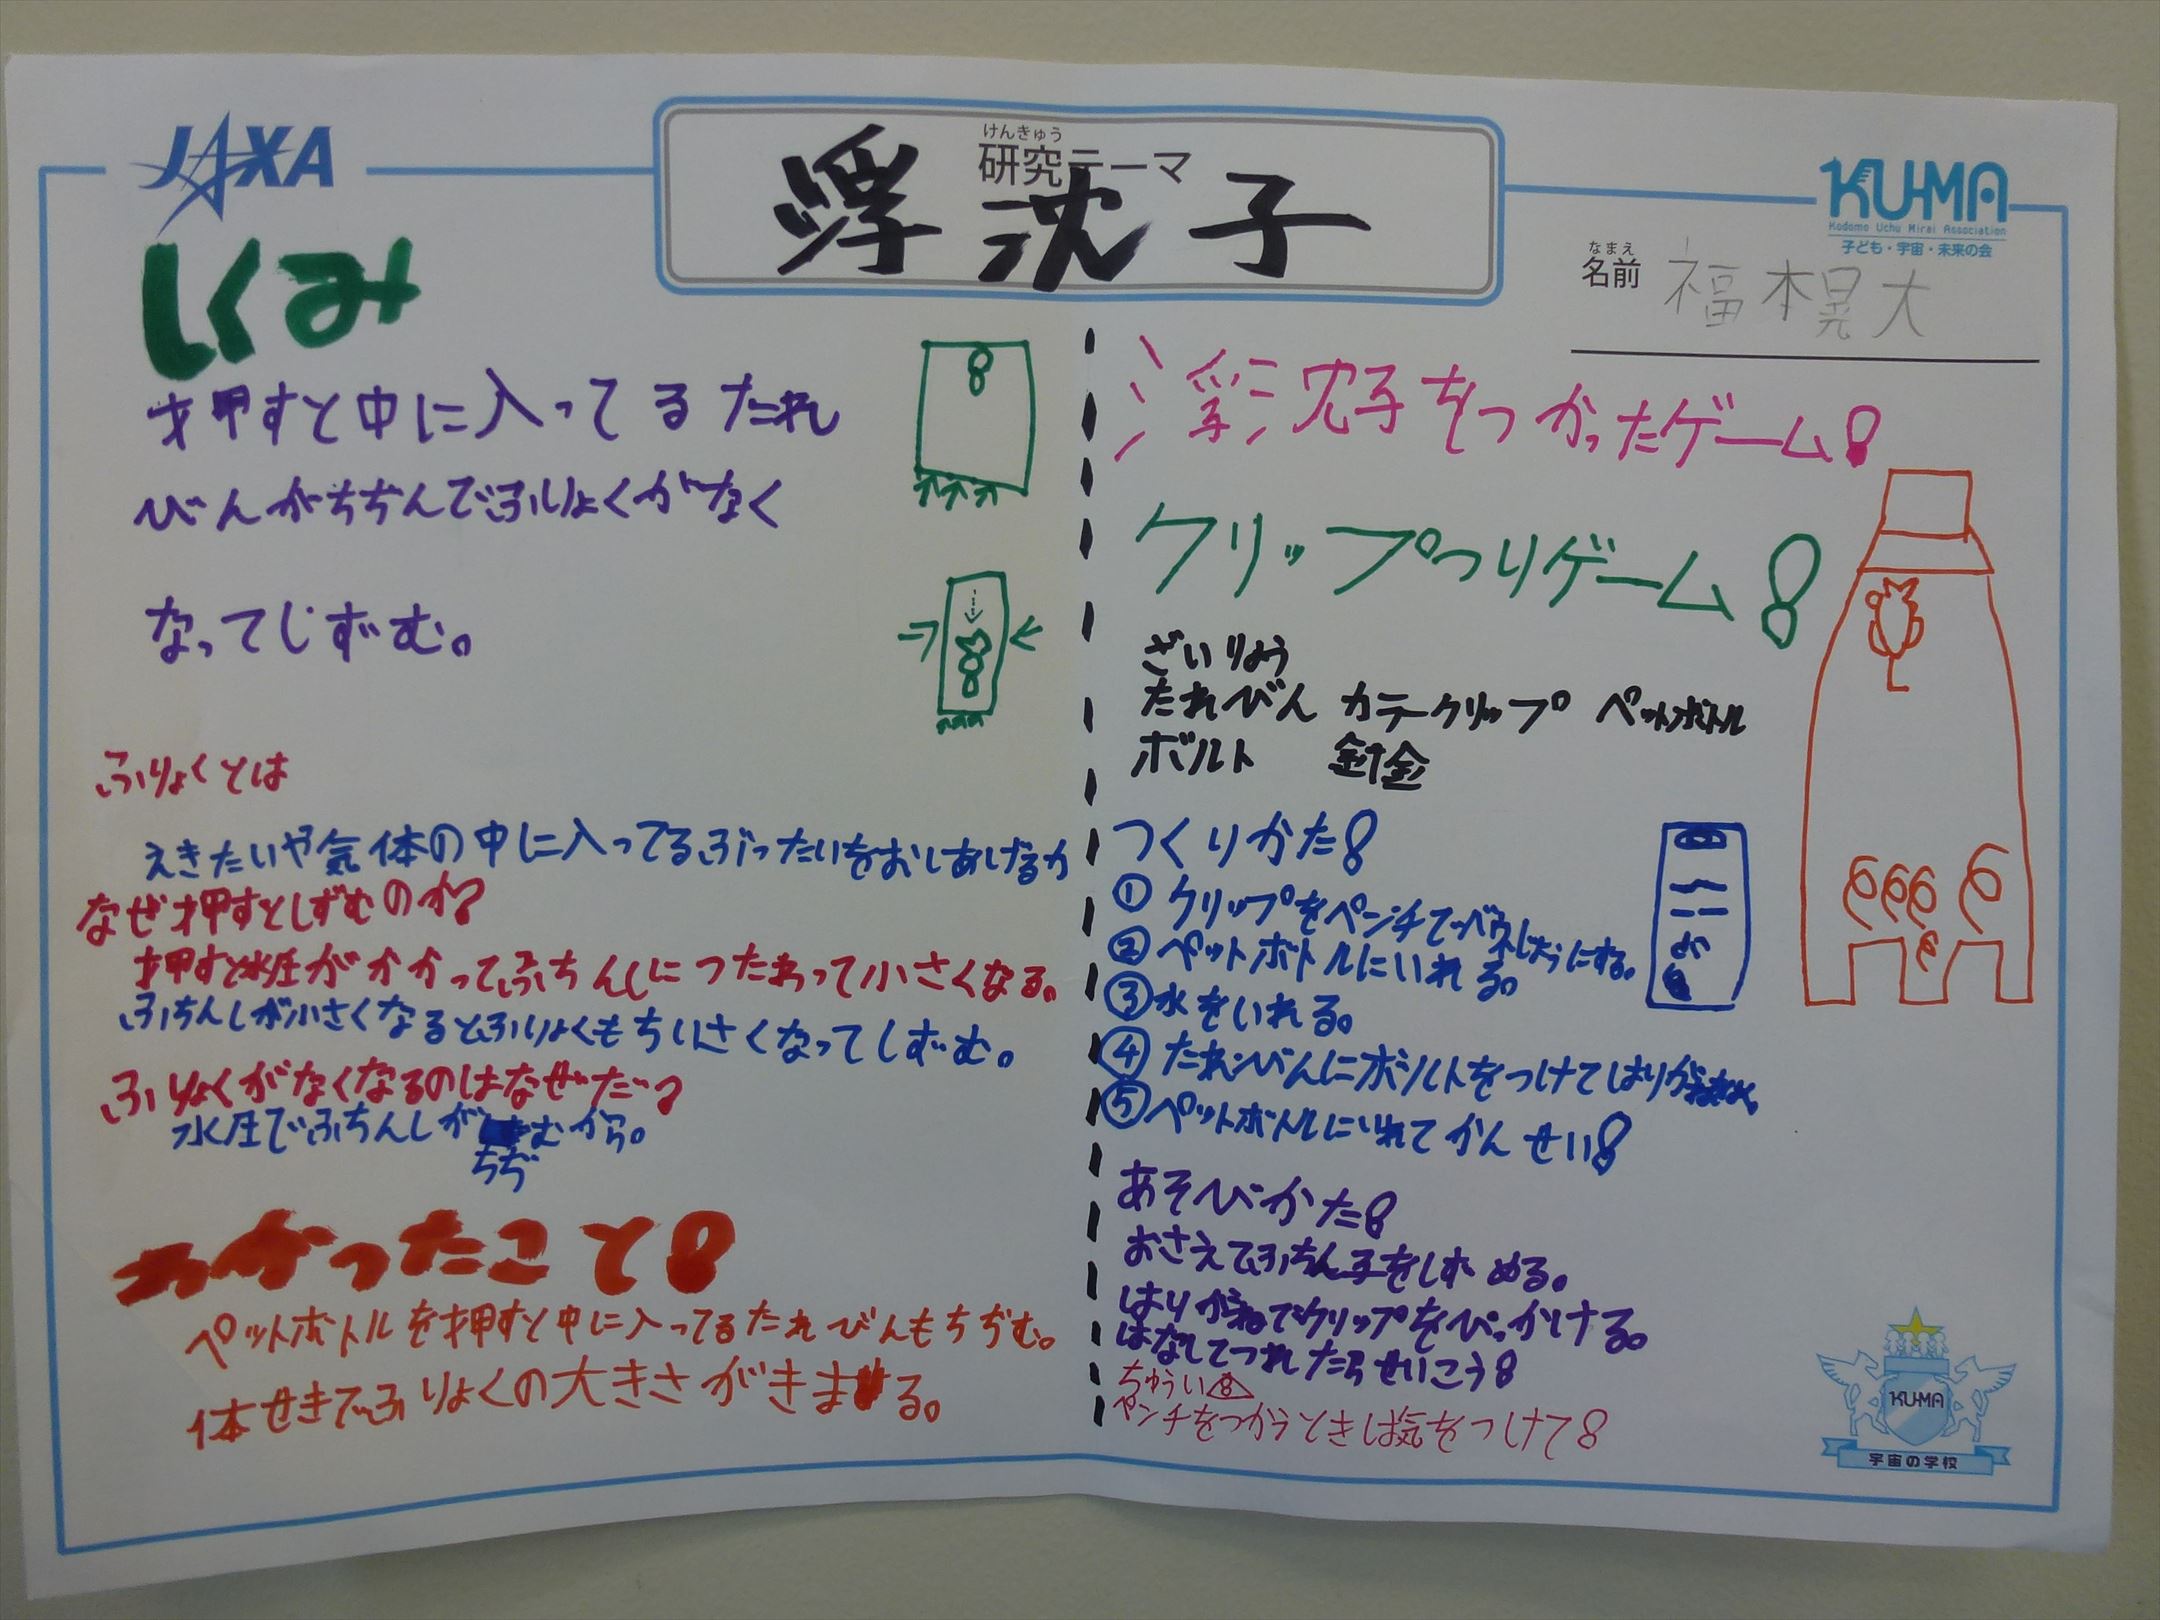 JAXA
けんきゅう
研究テーマ
浮沈子
KU-MA
Kodomo Uchu Mirai Association
子ども・宇宙・未来の会
なまえ
名前 福本晃大
しくみ
押すと中に入ってるたれ
びんがちぢんでふりょくがなく
なってしずむ。
ふりょくとは
えきたいや気体の中に入ってるぶったいをおしあげる力
なぜ押すとしずむのか?
押すと水圧がかかってふちんしにつたわって小さくなる。
ふちんしが小さくなるとふりょくもちいさくなってしずむ。
ふりょくがなくなるのはなぜだ?
水圧でふちんしがちぢむから。
わかったこと!
ペットボトルを押すと中に入ってるたれびんもちぢむ。
体せきでふりょくの大きさがきまる。
浮沈子をつかったゲーム!
クリップつりゲーム!
ざいりょう
たれびん カラークリップ ペットボトル
ボルト 針金
つくりかた!
① クリップをペンチで
② ペットボトルにいれる。
③ 水をいれる。
④ たれびんにボルトをつけてはりがね
⑤ ペットボトルにいれてかんせい!
あそびかた!
おさえてふちん子をしずめる。
はりがねでクリップをひっかける。
はなしてつれたらせいこう!
ちゅうい!
ペンチをつかうときは気をつけて!
KU-MA
宇宙の学校